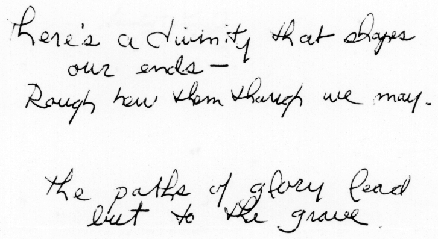 There's a divinity that shapes
our ends —
Rough hew them though we may.
the paths of glory lead
but to the grave.